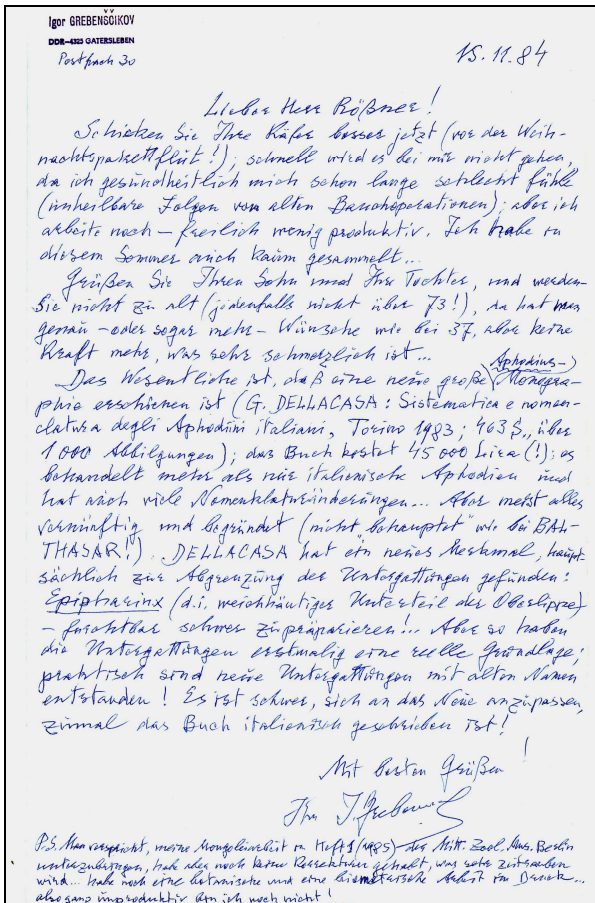 Igor GREBENŠČIKOV
DDR-4325 GATERSLEBEN
Postfach 30
15.11.84
Lieber Herr Rößner!
Schicken Sie Ihre Käfer besser jetzt (vor der Weih-
nachtspaketflut!); schnell wird es bei mir nicht gehen,
da ich gesundheitlich mich schon lange schlecht fühle
(unheilbare Folgen von alten Bauchoperationen); aber ich
arbeite noch – freilich wenig produktiv. Ich habe in
diesem Sommer auch kaum gesammelt...
Grüßen Sie Ihren Sohn und Ihre Tochter, und werden
Sie nicht zu alt (jedenfalls nicht über 73!), da hat man
genau – oder sogar mehr – Wünsche wie bei 37, aber keine
Kraft mehr, was sehr schmerzlich ist...
Das Wesentliche ist, daß eine neue große Aphodius-Monogra-
phie erschienen ist (G. DELLACASA: Sistematica e nomen-
clatura degli Aphodini italiani, Torino 1983; 463 S., über
1000 Abbilgungen); das Buch kostet 45 000 Lira (!); es
behandelt mehr als nur italienische Aphodien und
hat auch viele Nomenklaturänderungen... Aber meist alles
vernünftig und begründet (nicht "behauptet" wie bei BAL-
THASAR!). DELLACASA hat ein neues Merkmal, haupt-
sächlich zur Abgrenzung der Untergattungen gefunden:
Epipharinx (d.i. weichhäutiger Unterteil der Oberlippe)
– furchtbar schwer zu präparieren!.. Aber so haben
die Untergattungen erstmalig eine reelle Grundlage;
praktisch sind neue Untergattungen mit alten Namen
entstanden! Es ist schwer, sich an das Neue anzupassen,
zumal das Buch italienisch geschrieben ist!
Mit besten Grüßen!
Ihr I. Grebenšč
P.S. Man verspricht, meine Mongoleiarbeit in Heft 1 (1985) der Mitt. Zool. Mus. Berlin
unterzubringen, habe aber noch keine Korrekturen gehabt, was sehr zeitrauben
wird... habe noch eine botanische und eine biometrische Arbeit im Druck...
also ganz improduktiv bin ich noch nicht!